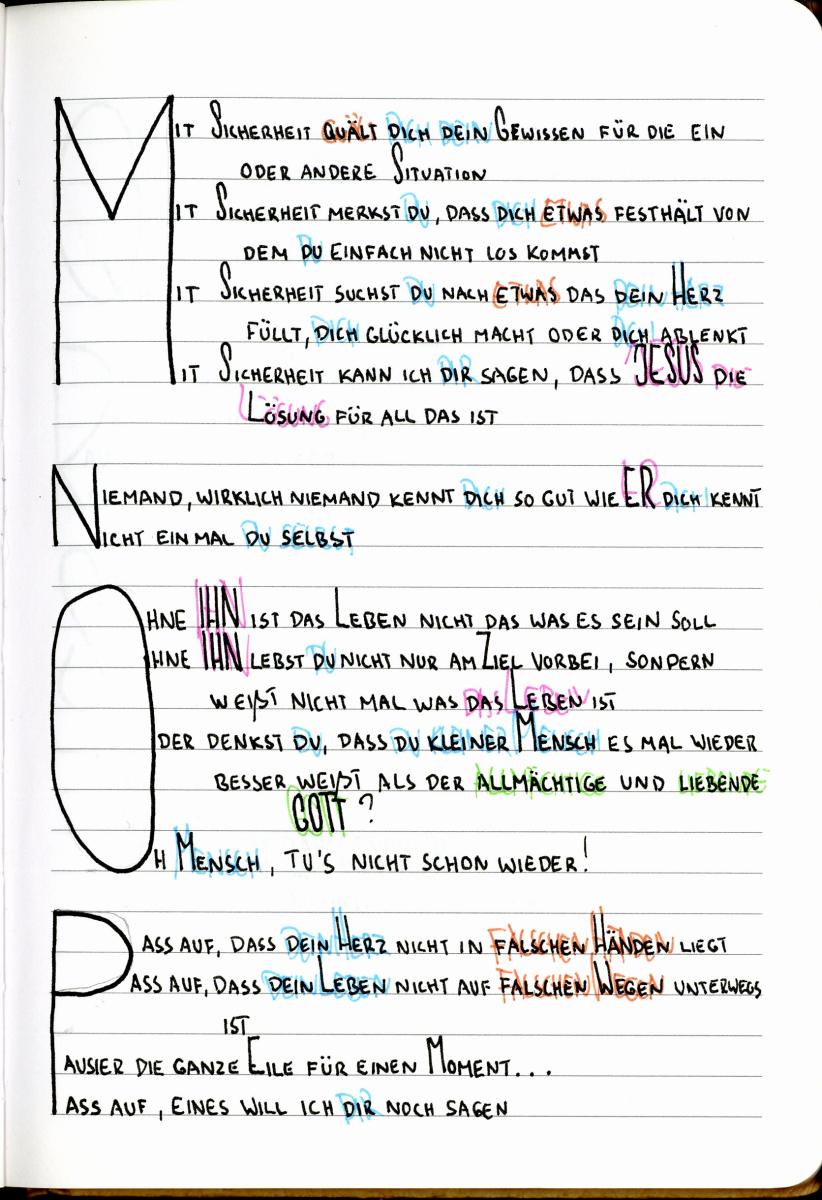 MIT SICHERHEIT QUÄLT DICH DEIN GEWISSEN FÜR DIE EIN
ODER ANDERE SITUATION
MIT SICHERHEIT MERKST DU, DASS DICH ETWAS FESTHÄLT VON
DEM DU EINFACH NICHT LOS KOMMST
MIT SICHERHEIT SUCHST DU NACH ETWAS DAS DEIN HERZ
FÜLLT, DICH GLÜCKLICH MACHT ODER DICH ABLENKT
MIT SICHERHEIT KANN ICH DIR SAGEN, DASS JESUS DIE
LÖSUNG FÜR ALL DAS IST
NIEMAND, WIRKLICH NIEMAND KENNT DICH SO GUT WIE ER DICH KENNT
NICHT EINMAL DU SELBST
OHNE IHN IST DAS LEBEN NICHT DAS WAS ES SEIN SOLL
OHNE IHN LEBST DU NICHT NUR AM ZIEL VORBEI, SONDERN
WEIßT NICHT MAL WAS DAS LEBEN IST
ODER DENKST DU, DASS DU KLEINER MENSCH ES MAL WIEDER
BESSER WEIßT ALS DER ALLMÄCHTIGE UND LIEBENDE
GOTT ?
OH MENSCH, TU'S NICHT SCHON WIEDER!
PASS AUF, DASS DEIN HERZ NICHT IN FALSCHEN HÄNDEN LIEGT
PASS AUF, DASS DEIN LEBEN NICHT AUF FALSCHEN WEGEN UNTERWEGS
IST
PAUSIER DIE GANZE EILE FÜR EINEN MOMENT...
PASS AUF, EINES WILL ICH DIR NOCH SAGEN